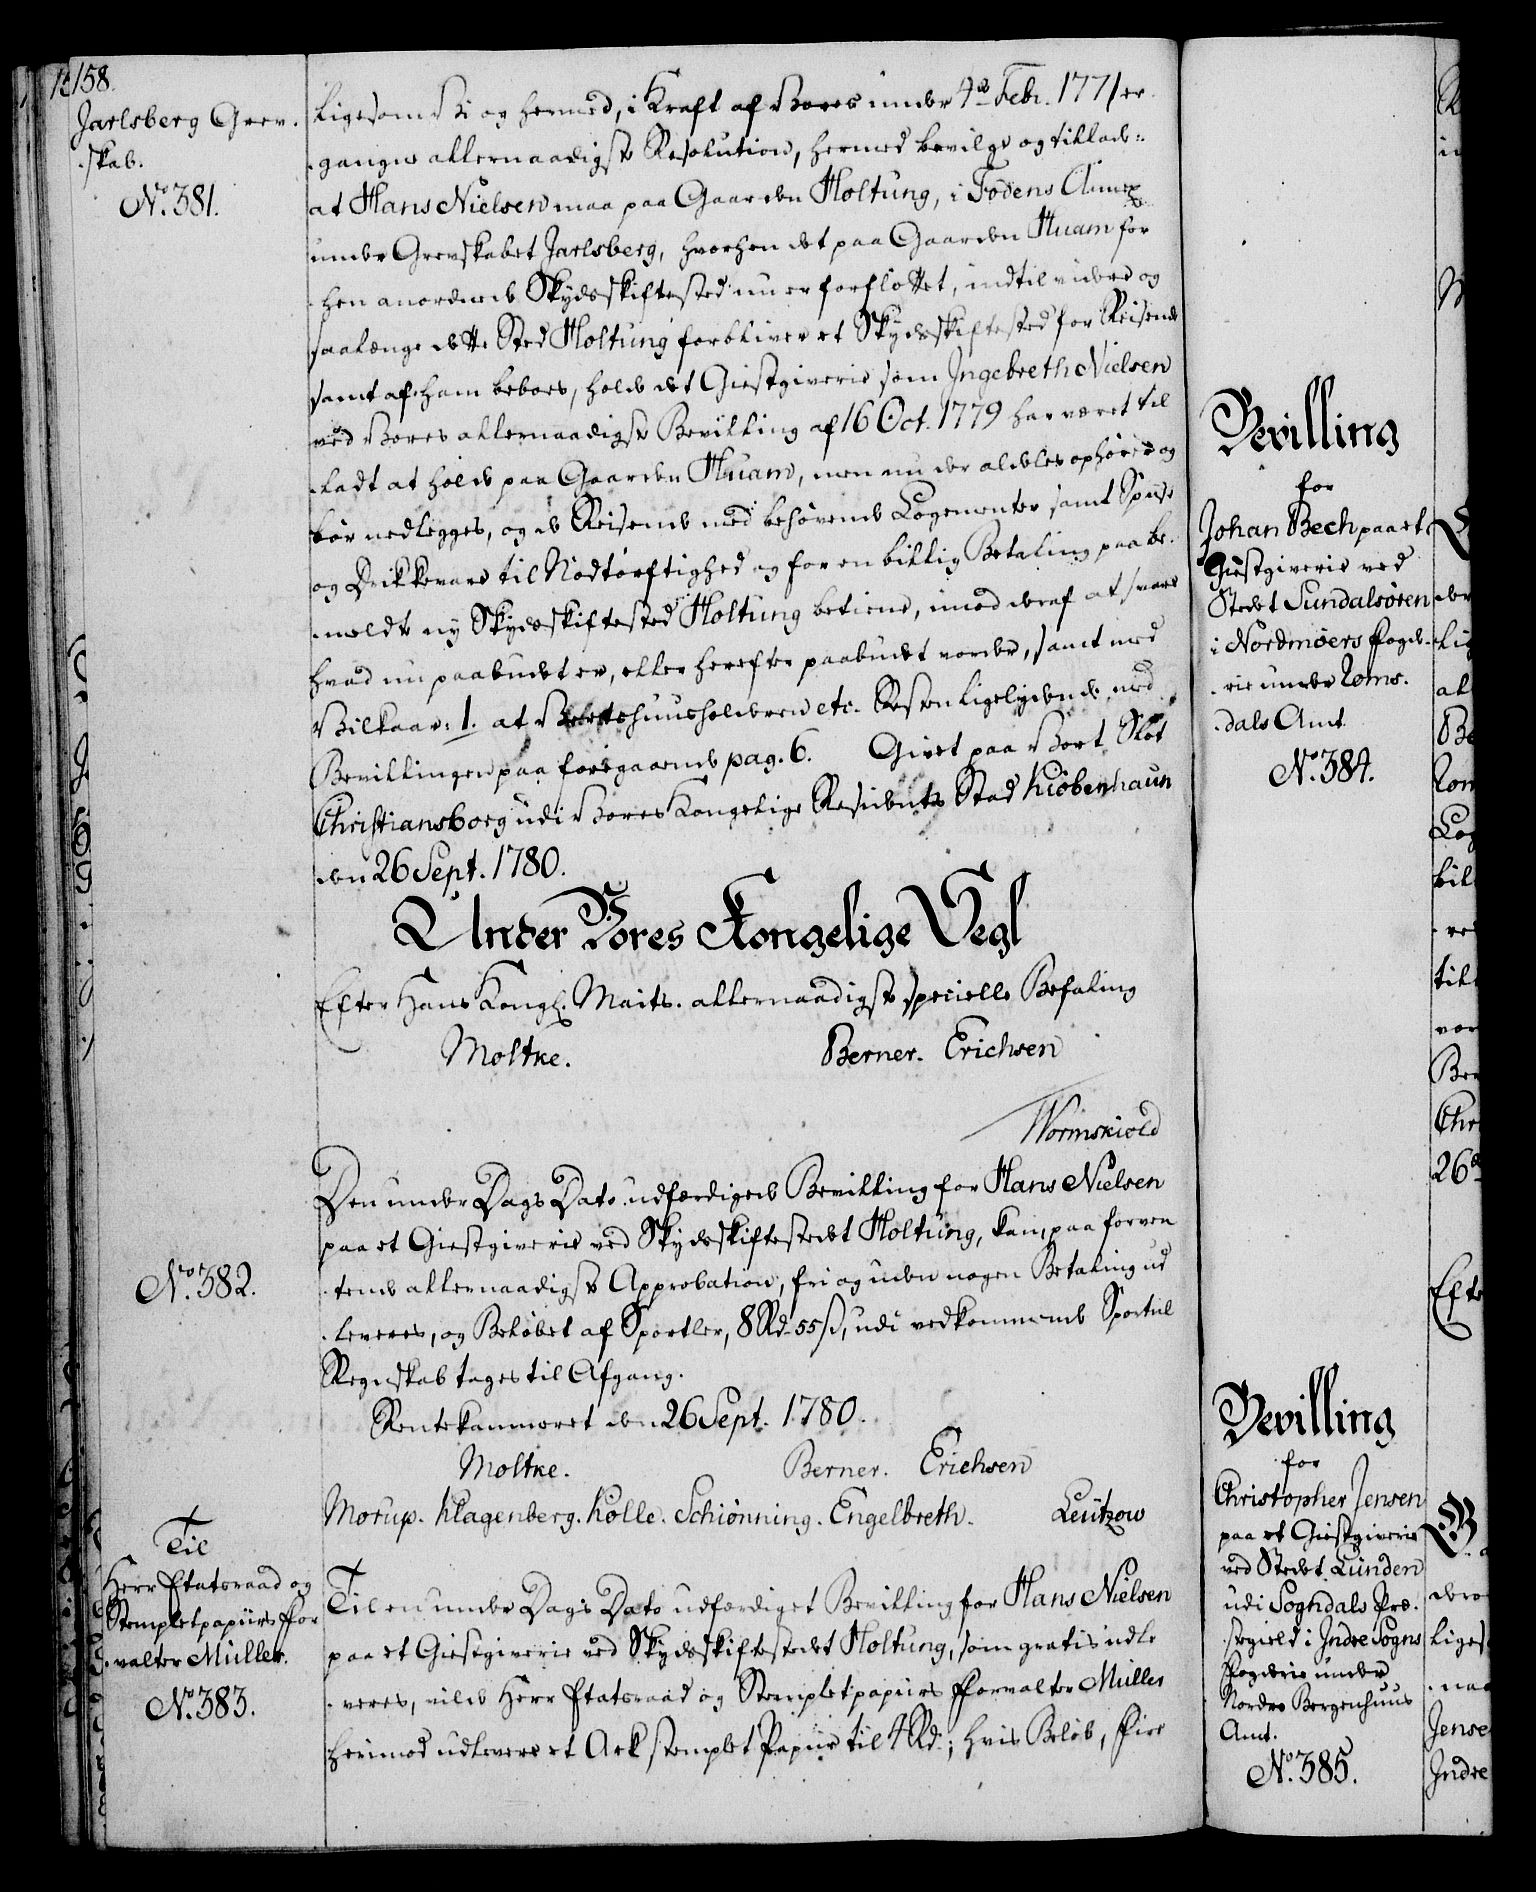 158.
Jarlsberg Grev-
skab.
No. 381.
Ligesom Vi og hermed, i Kraft af Vores under 4de Febr. 1771 er-
gangne allernaadigste Resolution, hermed bevilge og tillade:
at Hans Nielsen maa paa Gaarden Holtung, i Fodens Annex
under Grevskabet Jarlsberg, hvorhen det paa Gaarden Huam for
hen anordnede Skydsskiftested nu er forflöttet, indtil videre og
saalænge dette Sted Holtung forbliver et Skydsskiftested for Reisende
samt af ham beboes, holde det Giestgiverie som Ingebreth Nielsen
ved Vores allernaadigste Bevilling af 16 Oct. 1779 har været til
ladt at holde paa Gaarden Huam, men nu der aldeles ophører og
bör nedlegges, og de Reisende med behövende Logementer samt Spise
og Drikkevare til Nödtörftighed og for en billig Betaling paa be-
meldte ny Skydsskiftested Holtung betiene, imod deraf at svare
hvad nu paabudet er, eller herefter paabudet vorder, samt med
Vilkaar: 1. at Vertshuusholderen etc. Resten ligelydende med
Bevillingen paa foregaaende pag. 6. Givet paa Vort Slot
Christiansborg udi Vores Kongelige Residents Stad Kiöbenhaun
den 26 Sept. 1780.
Under Vores Kongelige Segl
Efter Hans Kongl. Maits. allernaadigste specielle Befaling
Moltke. Berner. Erichsen
Wormskiold
No. 382.
Den under Dags Dato udfærdigede Bevilling for Hans Nielsen
paa et Giestgiverie ved Skydsskiftestedet Holtung, kan, paa forven
tende allernaadigste Approbation, fri og uden nogen Betaling ud
leveres, og Belöbet af Sportler, 8 Rd. 55 ß, udi vedkommende Sportul
Regnskab tages til Afgang.
Rentekammeret den 26 Sept. 1780.
Moltke. Berner. Erichsen
Morup. Klagenberg. Kölle. Schiönning. Engelbreth. Leützow
Til
Herr Etatsraad og
Stempletpapiirs For
valter Müller.
No. 383.
Til en under Dags Dato udfærdiget Bevilling for Hans Nielsen
paa et Giestgiverie ved Skydsskiftestedet Holtung, som gratis udle
veres, vilde Herr Etatsraad og Stempletpapiirs Forvalter Müller
herimod udlevere et Ark stemplet Papiir til 4 Rd.; hvis Belöb, Fire
Bevilling
for
Johan Bech paa et
Giestgiverie ved
Stedet Sundalsören
i Nordmöers Fogde-
rie under Roms-
dals Amt
No. 384.
Bevilling
for
Christopher Jensen
paa et Giestgiverie
ved Stedet Lunden
udi Soghdals Præ-
stegield i Indre Sogns
Fogderie under
Nordre Bergenhuus
Amt.
No. 385.